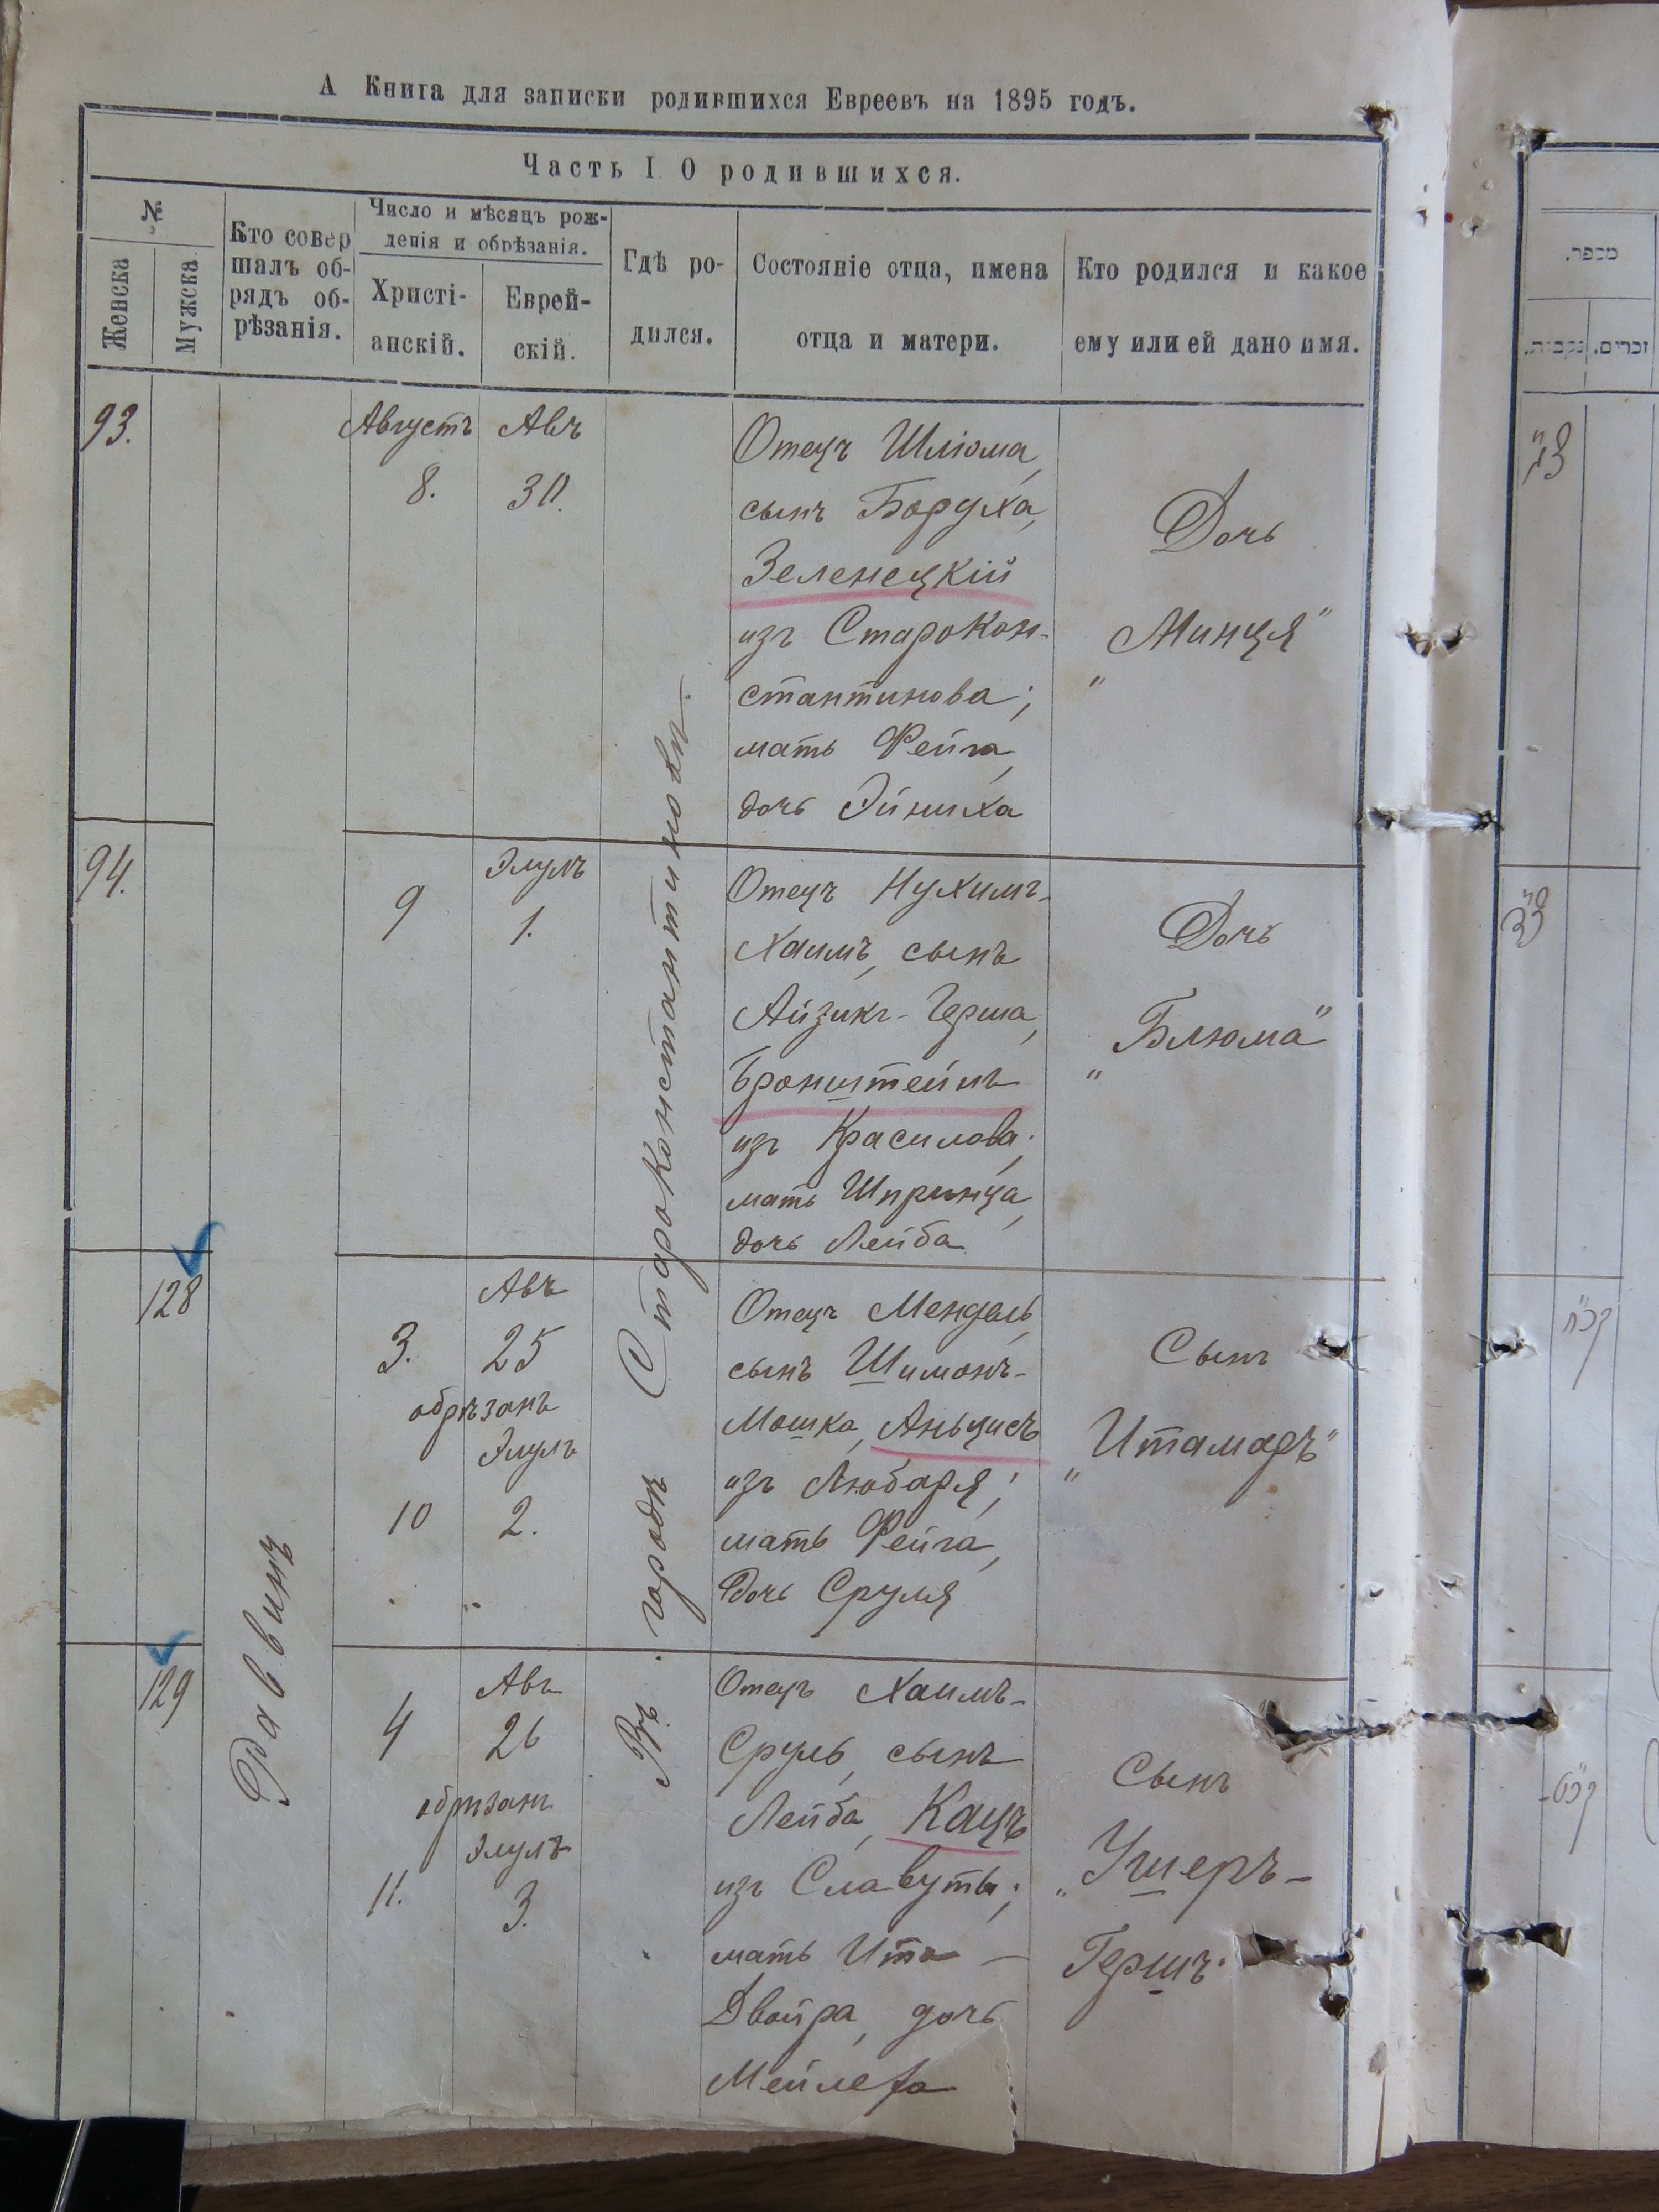 А Книга для записки родившихся Евреевъ на 1895 годъ.
Часть I О родившихся.
№
Женска
Мужска
Кто совер
шалъ об-
рядъ об-
рѣзанія.
Число и мѣсяцъ рож-
денія и обрѣзанія.
Христі-
анскій.
Еврей-
скій.
Гдѣ ро-
дился.
Состояніе отца, имена
отца и матери.
Кто родился и какое
ему или ей дано имя.
93.
Августъ
8.
Авъ
30.
Отецъ Шлiома,
сынъ Боруха,
Зеленецкій
изъ Старокон-
стантинова;
мать Фейга,
дочь Эйниха
Дочь
"Минця"
94.
9
Элулъ
1.
Отецъ Нухимъ-
Хаимъ, сынъ
Айзикъ-Герша,
Бронштейнъ
изъ Красилова;
мать Шпринца,
дочь Лейба
Дочь
"Блюма"
128
3.
Авъ
25
обрѣзанъ
Элулъ
10
2.
Отецъ Мендель,
сынъ Шимонъ-
Мошка, Аньцисъ
изъ Любаря;
мать Фейга,
дочь Сруля
Сынъ
"Итамаръ"
129
4
Авъ
26
обрѣзанъ
Элулъ
11.
3.
Отецъ Хаимъ-
Сруль, сынъ
Лейба, Кацъ
изъ Славуты;
мать Ита-
Двойра, дочь
Мейлеха
Сынъ
"Ушеръ-
Гершъ"
Раввинъ
Въ городѣ Староконстантиновѣ.
מספר.
זכרים.
נקבות.
צ״ג
צ״ד
קכ״ח
קכ״ט